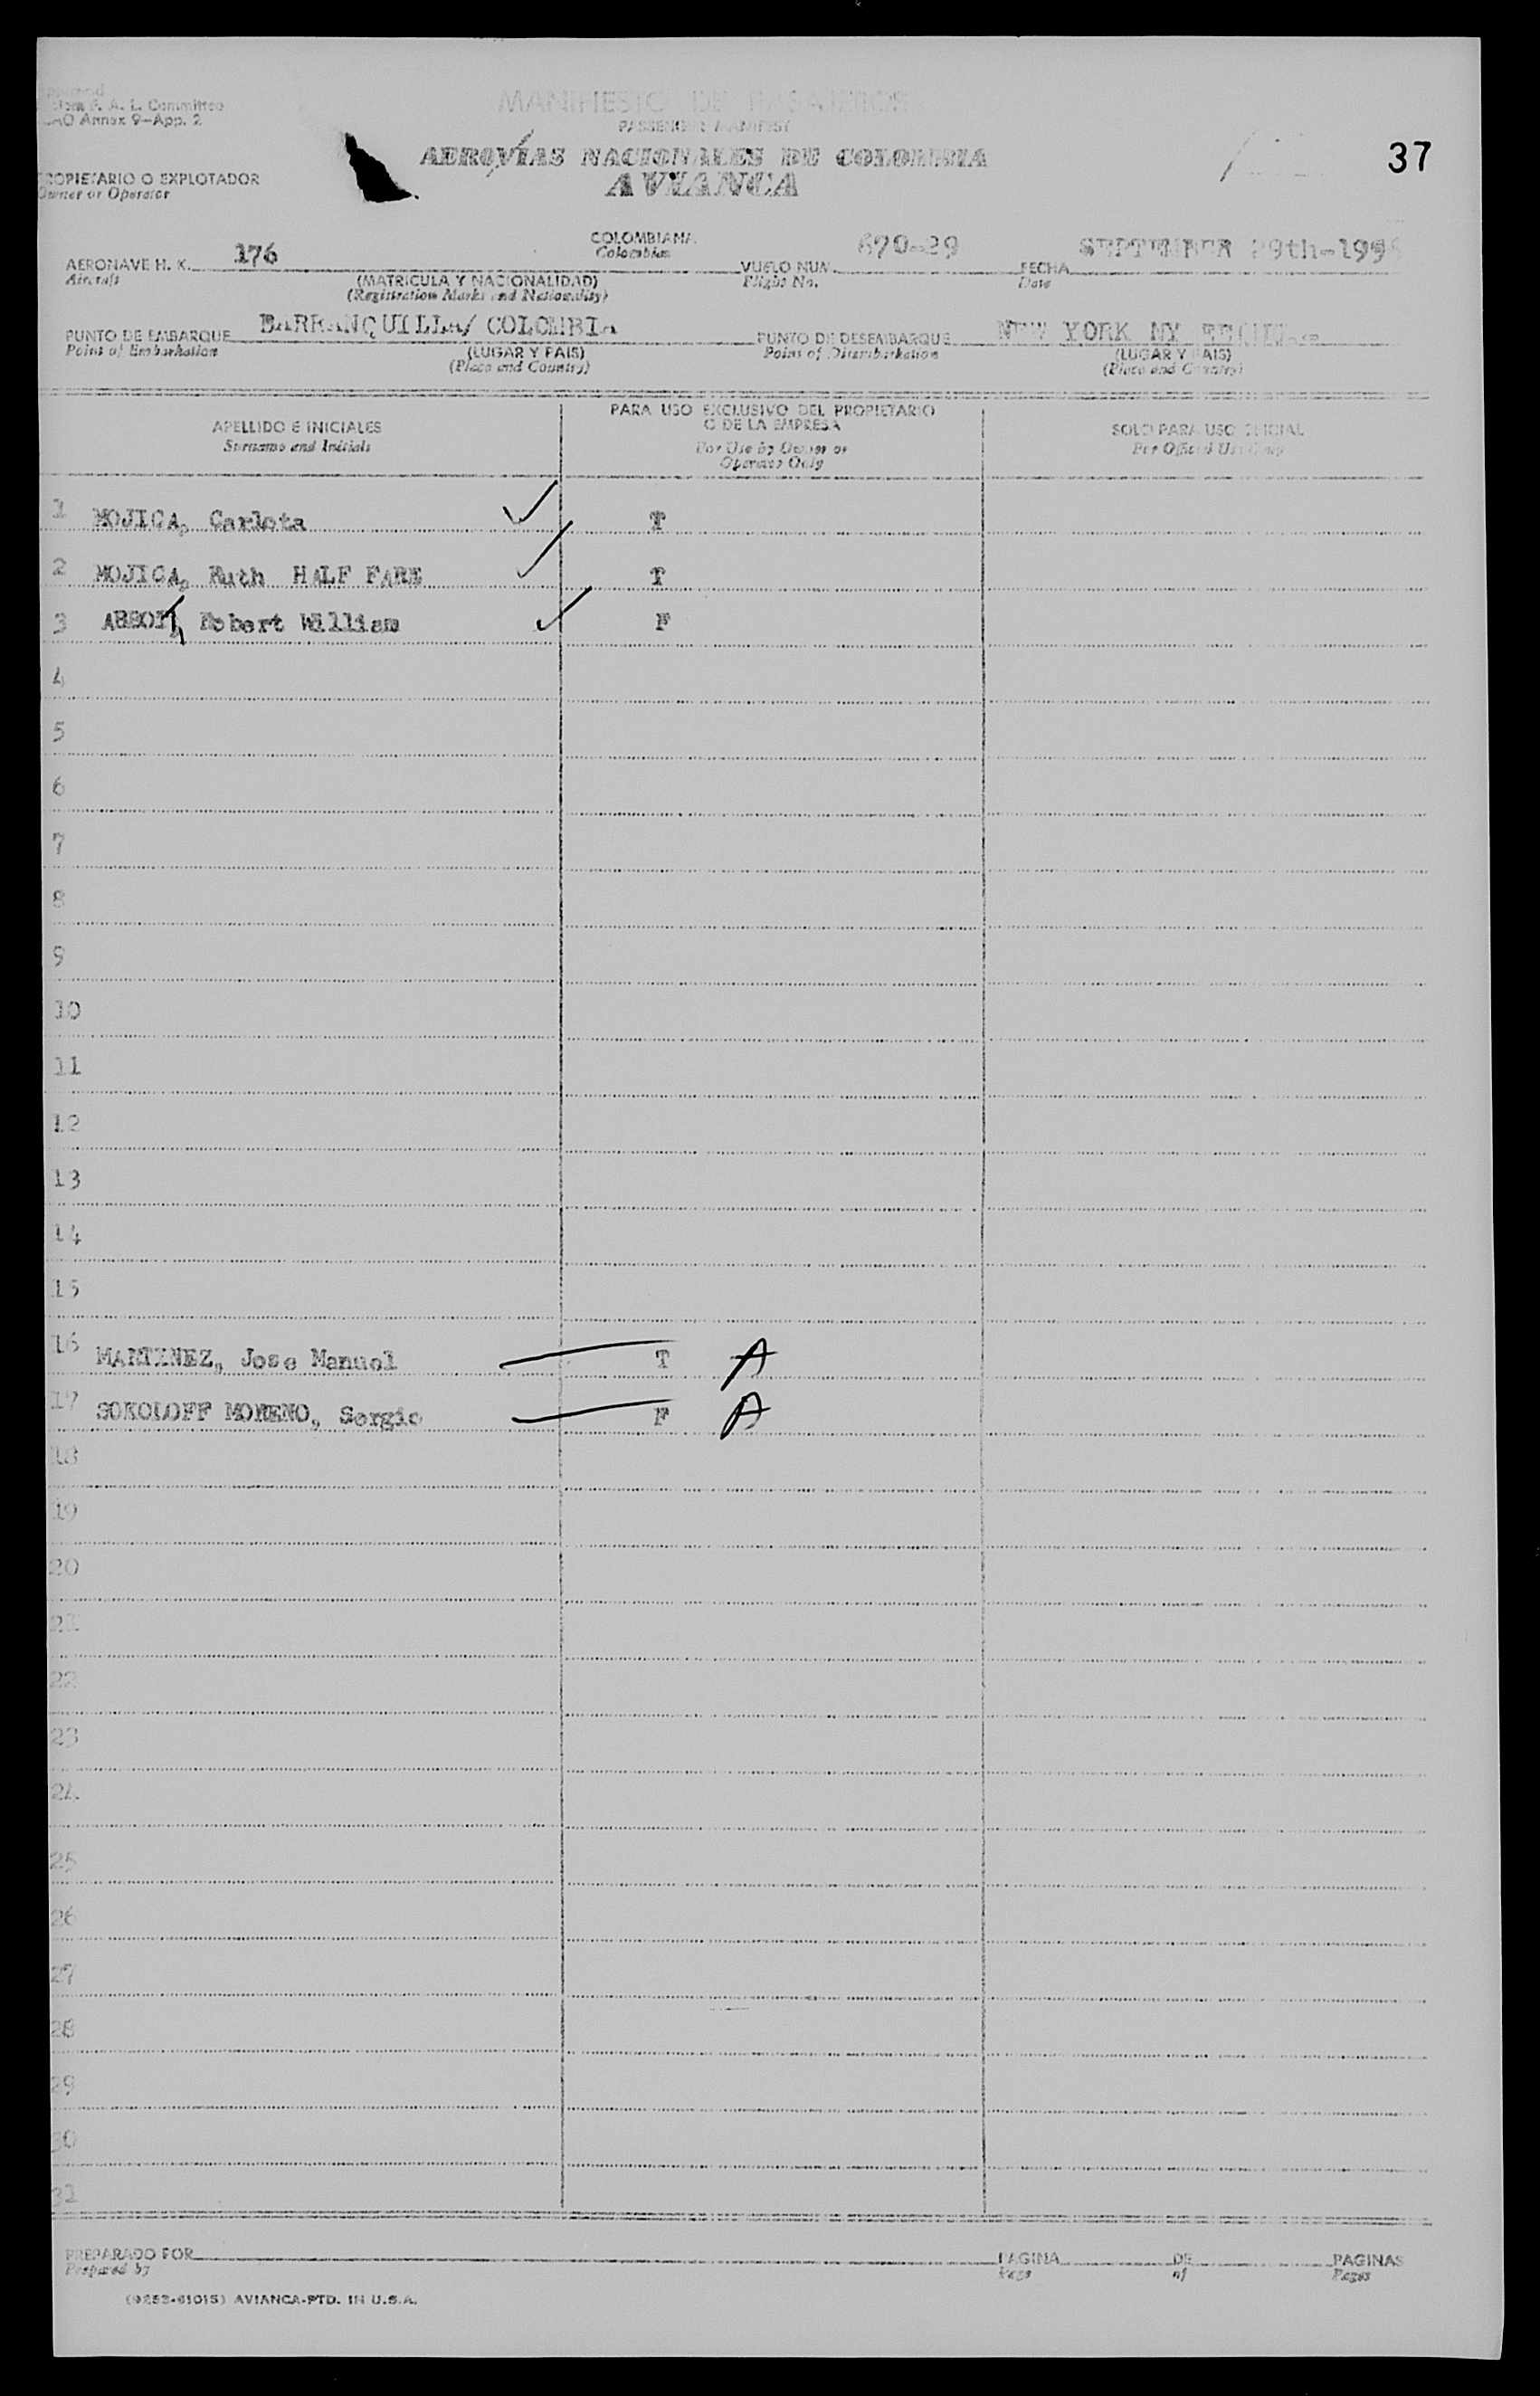 F. A. L. Committee
Annex 9-App. 2
MANIFIESTO DE PASAJEROS
PASSENGER MANIFEST
AEROVIAS NACIONALES DE COLOMBIA
AVIANCA
37
PROPIETARIO O EXPLOTADOR
Owner or Operator
AERONAVE H. K. 176
Aircraft
COLOMBIANA
Colombian
(MATRICULA Y NACIONALIDAD)
(Registration Marks and Nationality)
VUELO NUM. 670-29
Flight No.
FECHA SEPTEMBER 29th-195
Date
PUNTO DE EMBARQUE BARRANQUILLA/ COLOMBIA
Point of Embarkation
(LUGAR Y PAIS)
(Place and Country)
PUNTO DE DESEMBARQUE NEW YORK NY
Point of Disembarkation
(LUGAR Y PAIS)
(Place and Country)
APELLIDO E INICIALES
Surname and Initials
PARA USO EXCLUSIVO DEL PROPIETARIO
O DE LA EMPRESA
For Use by Owner or
Operator Only
SOLO PARA USO OFICIAL
For Official Use Only
1 MOJICA, Carlota T
2 MOJICA, Ruth HALF FARE T
3 Robert William F
4
5
6
7
8
9
10
11
12
13
14
15
16 MARTINEZ, Jose Manuel T A
17 SOKOLOFF MORENO, Sergio F A
18
19
20
21
22
23
24
25
26
27
28
29
30
31
PREPARADO POR
Prepared by
PAGINA DE PAGINAS
Page of Pages
(9253-61015) AVIANCA-PTD. IN U.S.A.